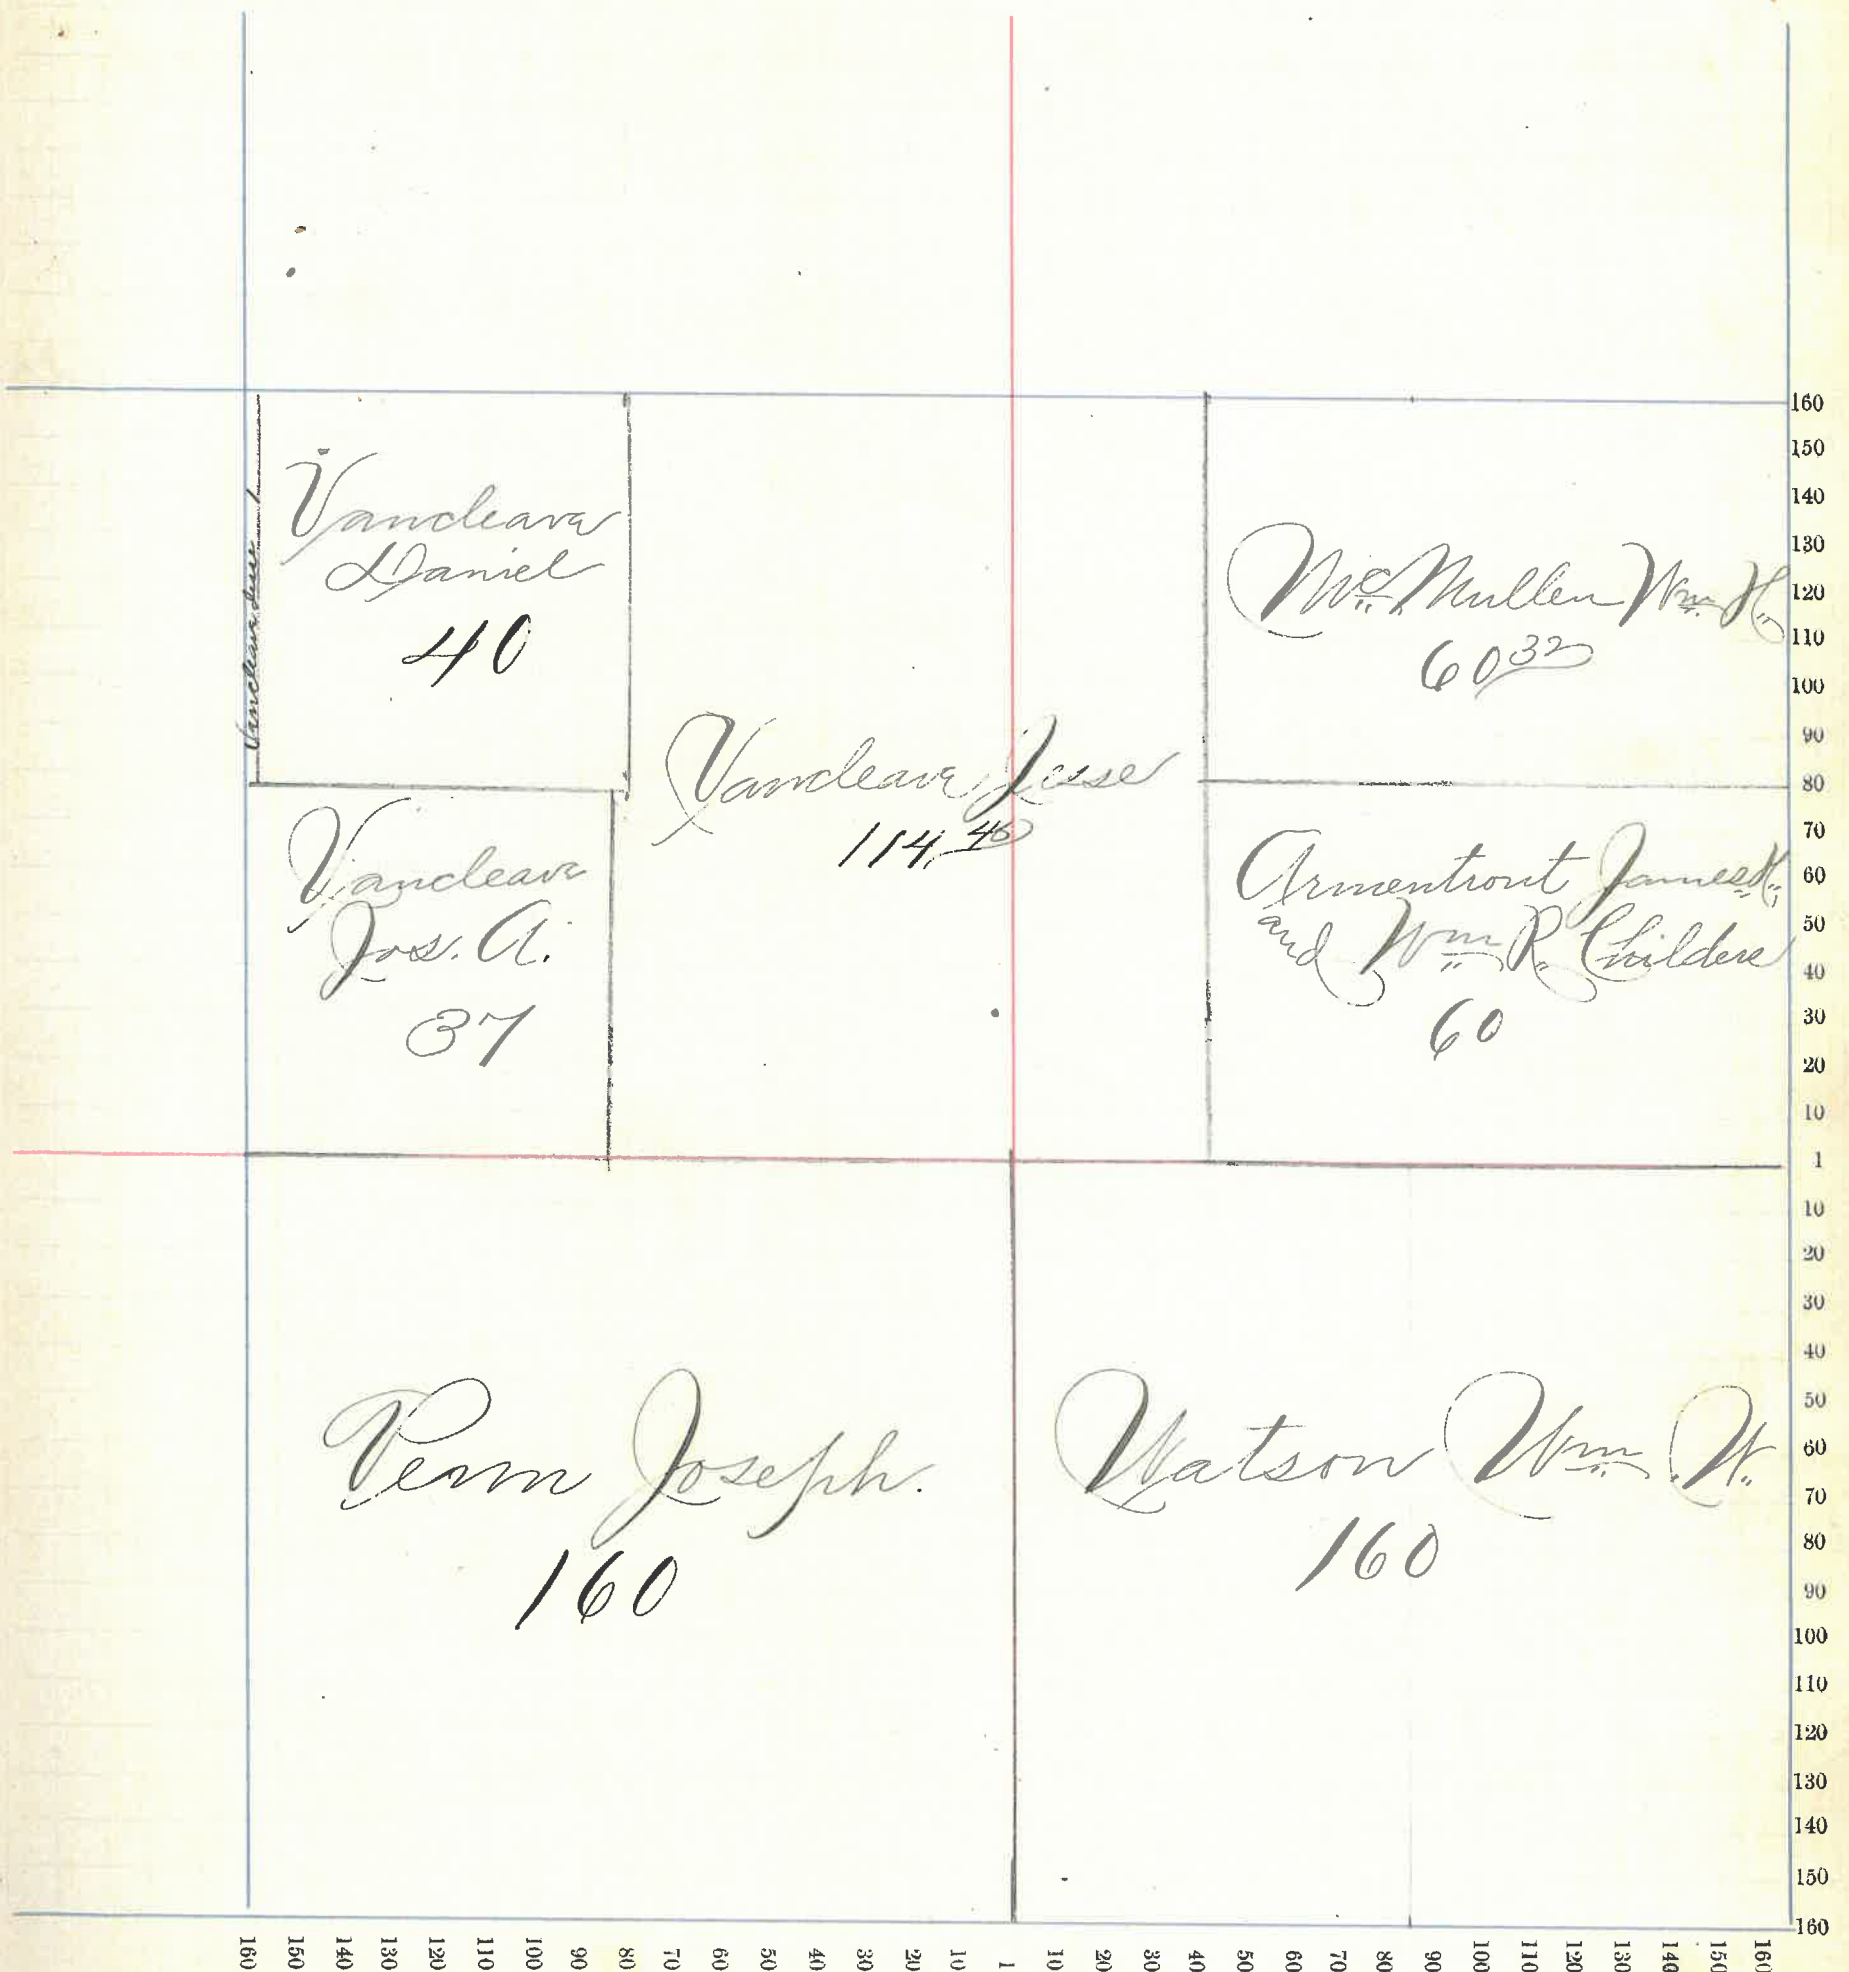 Vancleave Jesse 1
Vancleave
Daniel
40
Mc Mullen Wm H.
60 32
Vancleave Jesse
114, 46
Vancleave
Jos. A.
37
Armentrout James H.
and Wm R. Childers
60
Penn Joseph.
160
Watson Wm. W.
160
160
150
140
130
120
110
100
90
80
70
60
50
40
30
20
10
1
10
20
30
40
50
60
70
80
90
100
110
120
130
140
150
160
160 150 140 130 120 110 100 90 80 70 60 50 40 30 20 10 1 10 20 30 40 50 60 70 80 90 100 110 120 130 140 150 160